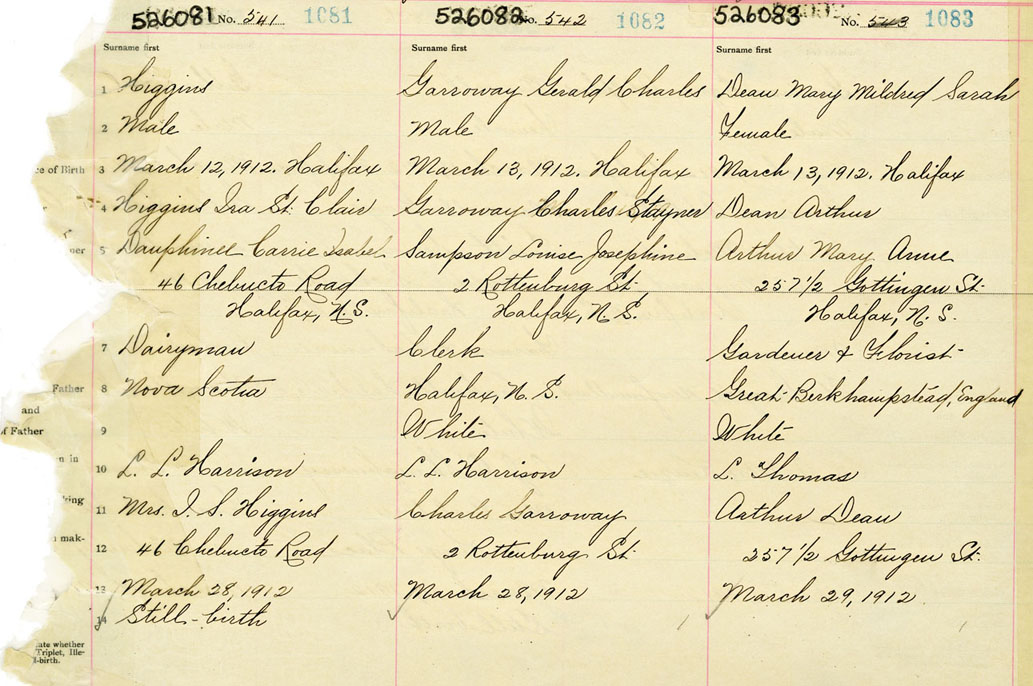 526081 No. 541 1081
Surname first
1 Higgins
2 Male
ce of Birth 3 March 12, 1912. Halifax
4 Higgins Ira St. Clair
ner 5 Dauphinee Carrie Isabel
46 Chebucto Road
Halifax, N.S.
7 Dairyman
Father 8 Nova Scotia
and
of Father 9
n in 10 L. L. Harrison
king 11 Mrs. I. S. Higgins
mak- 12 46 Chebucto Road
13 March 28, 1912
14 Still-birth
ate whether
Triplet, Ille-
l-birth.
526082 No. 542 1082
Surname first
Garroway Gerald Charles
Male
March 13, 1912. Halifax
Garroway Charles Stayner
Sampson Louise Josephine
2 Rottenburg St.
Halifax, N.S.
Clerk
Halifax, N.S.
White
L. L. Harrison
Charles Garroway
2 Rottenburg St.
March 28, 1912
526083 No. 543 1083
Surname first
Dean Mary Mildred Sarah
Female
March 13, 1912. Halifax
Dean Arthur
Arthur Mary Anne
257 1/2 Gottingen St.
Halifax, N.S.
Gardener & Florist
Great Berkhampstead, England
White
L. Thomas
Arthur Dean
257 1/2 Gottingen St.
March 29, 1912